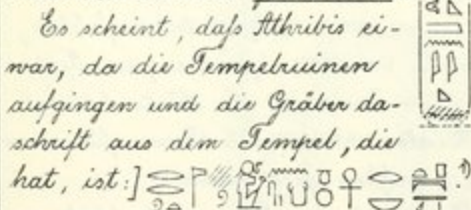 Es scheint, daſs Athribis ei-
war, da die Tempelruinen
aufgingen und die Gräber da-
schrift aus dem Tempel, die
hat, ist:]